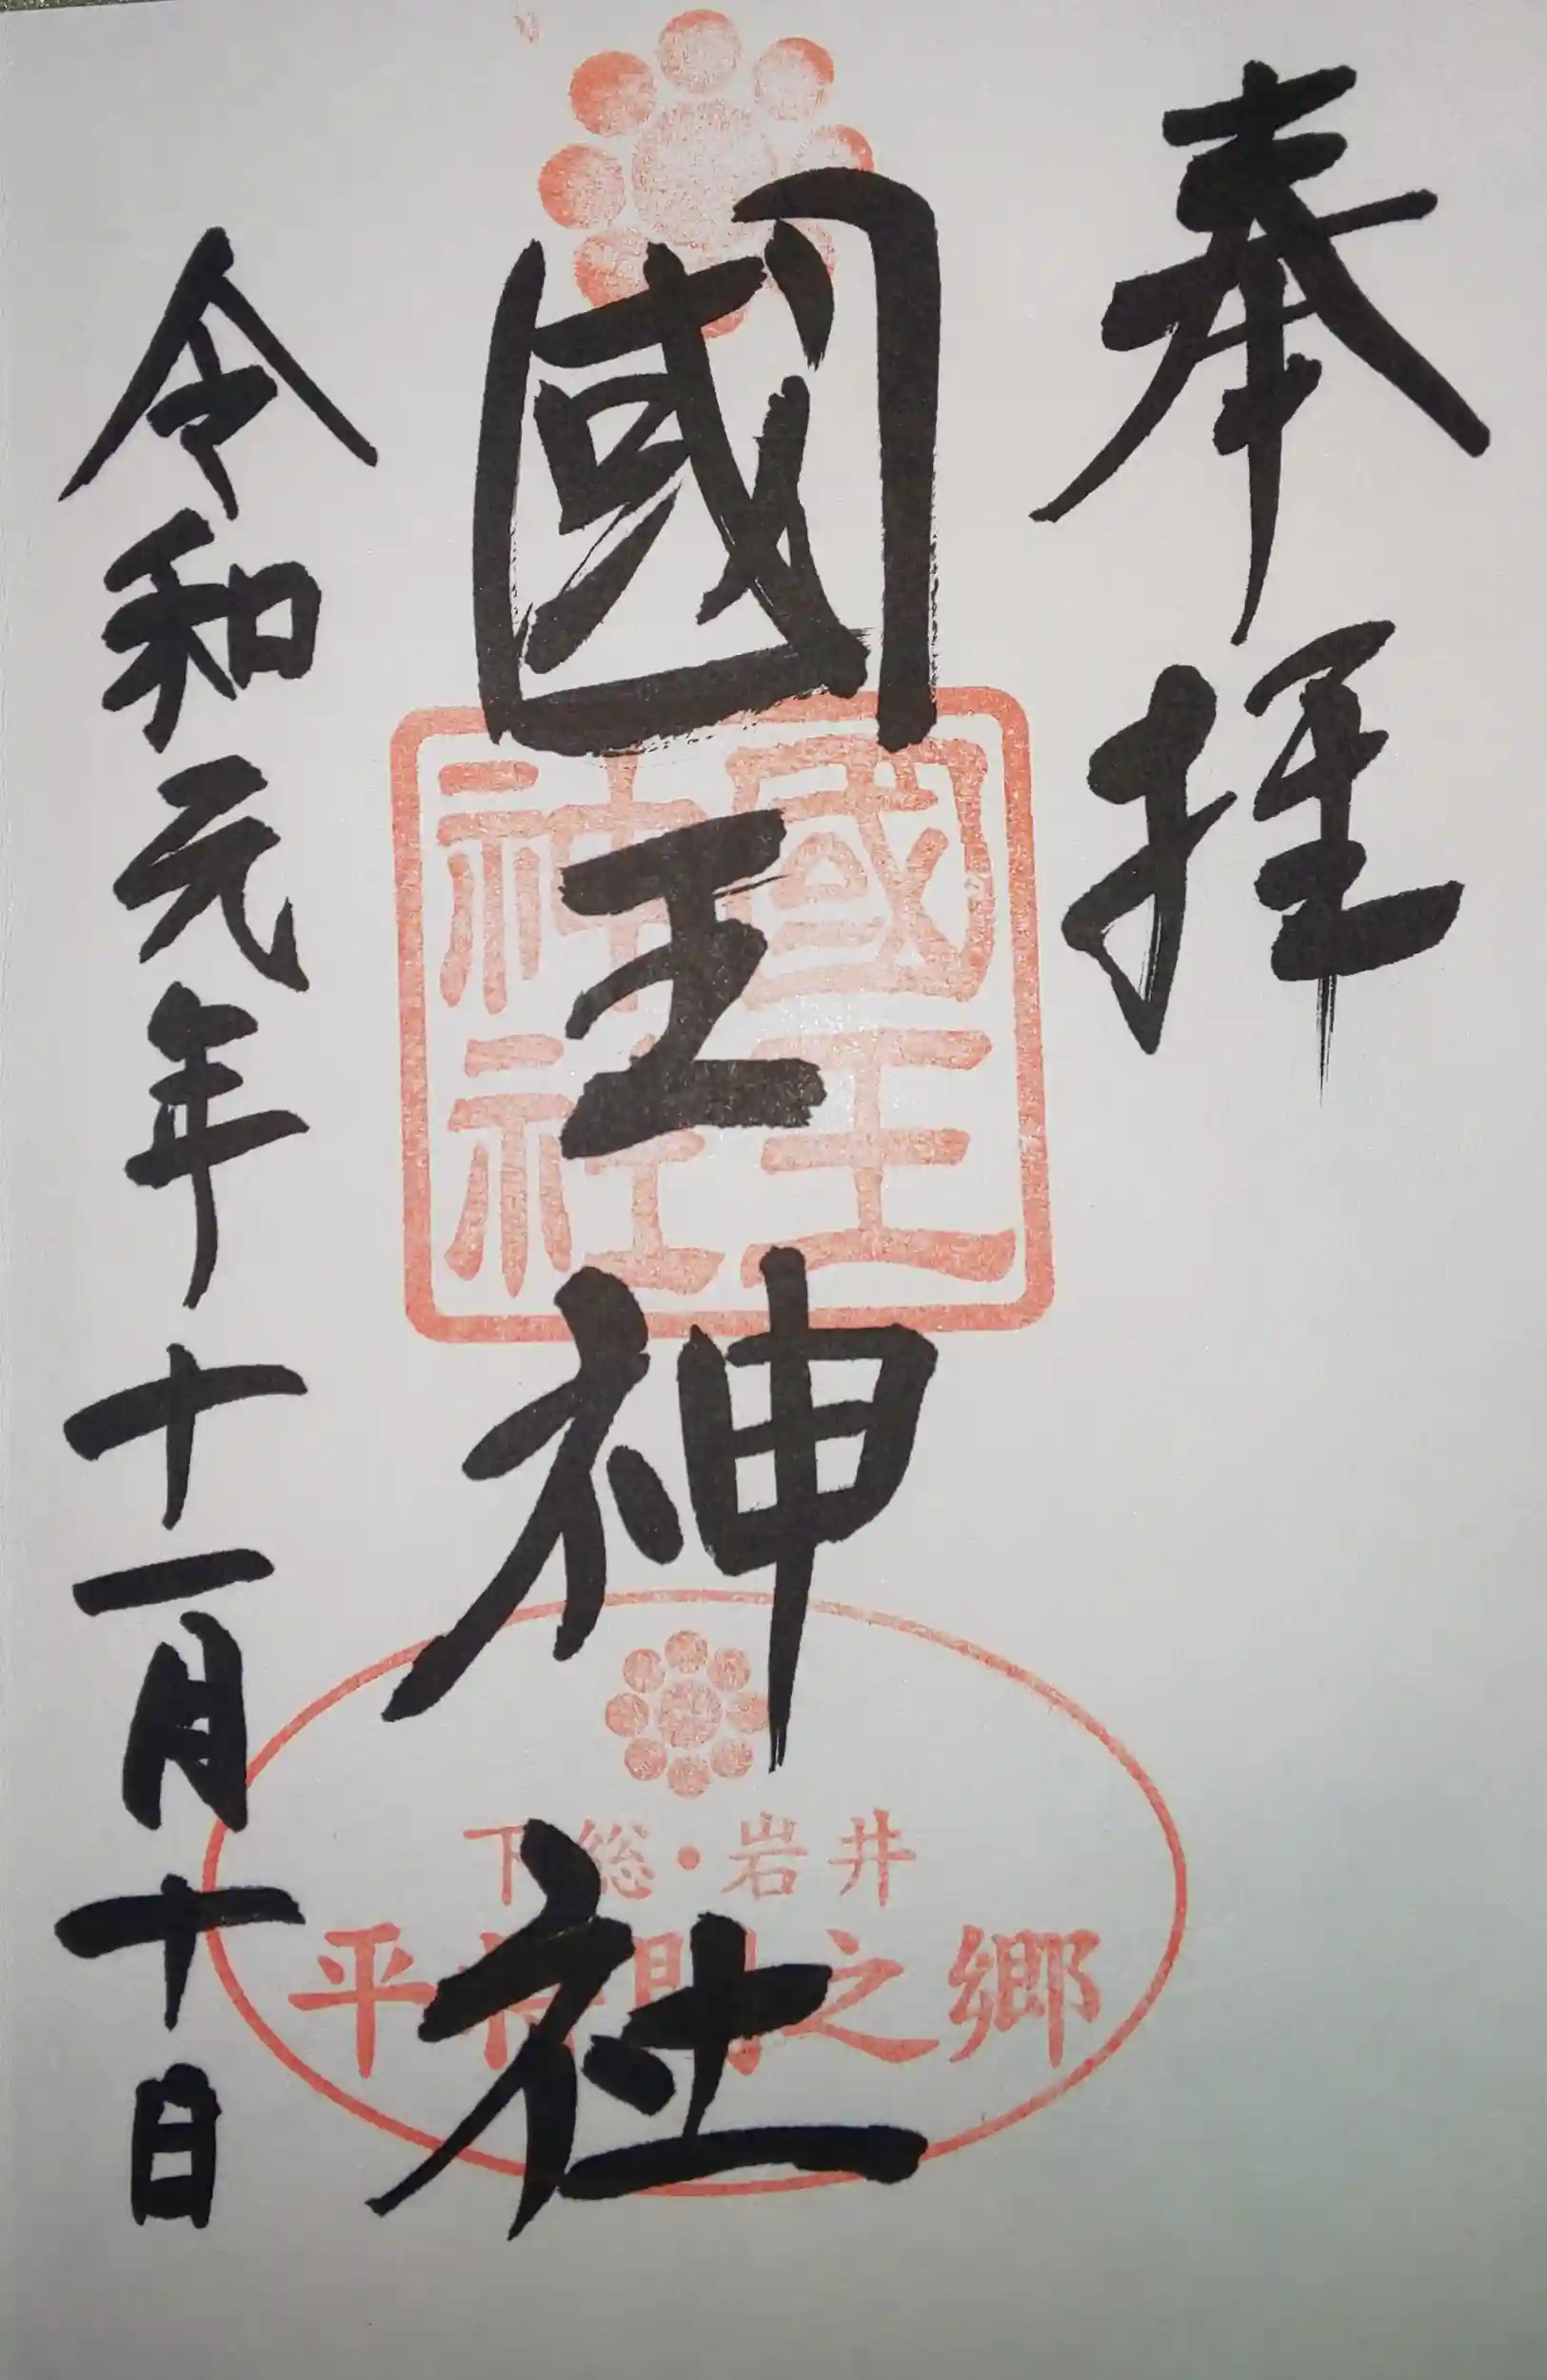 奉拝
國王神社
國王
神社
下総・岩井
平将門之郷
令和元年十一月十日